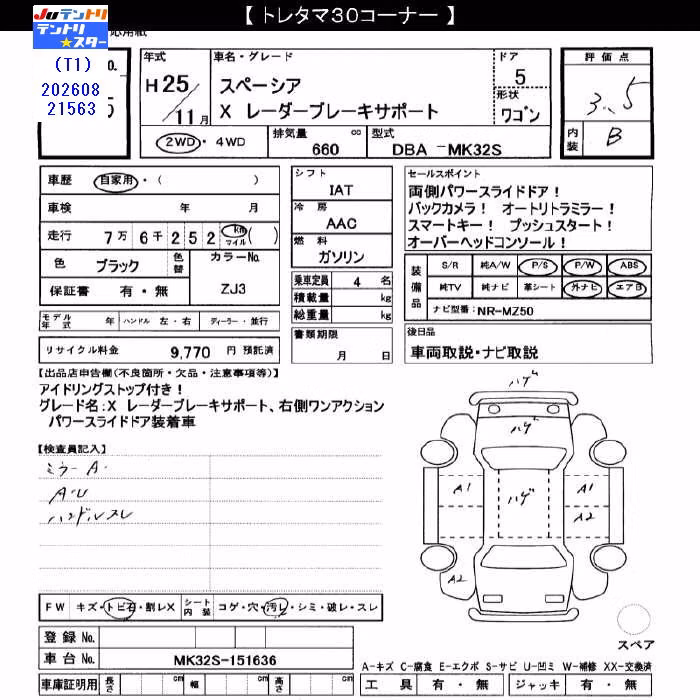 【トレタマ30コーナー】
JUテントリ
テントリ★スター
応用紙
(T1)
202608
21563
No.
5
年式
H25/11月
車名・グレード
スペーシア
X レーダーブレーキサポート
ドア
5
形状
ワゴン
評価点
3.5
内装
B
2WD・4WD
排気量
660 cc
型式
DBA -MK32S
車歴 自家用・( )
車検 年 月
走行 7万6千252 km マイル( )
色 ブラック 色替 カラーNo.
保証書 有・無 ZJ3
モデル年式 年 ハンドル 左・右 ディーラー・並行
リサイクル料金 9,770 円 預託済
シフト
IAT
冷房
AAC
燃料
ガソリン
乗車定員 4 名
積載量 kg
総重量 kg
書類期限
月 日
セールスポイント
両側パワースライドドア!
バックカメラ! オートリトラミラー!
スマートキー! プッシュスタート!
オーバーヘッドコンソール!
装備品 S/R 純A/W P/S P/W ABS
純TV 純ナビ 革シート 外ナビ エアB
ナビ型番:NR-MZ50
後日品
車両取説・ナビ取説
【出品店申告欄(不良箇所・欠品・注意事項等)】
アイドリングストップ付き!
グレード名:X レーダーブレーキサポート、右側ワンアクション
パワースライドドア装着車
【検査員記入】
ミラーA
A・U
ハンドルスレ
ハゲ
ハゲ
ハゲ
A1
A1
A2
A2
スペア
FW キズ・トビ石・割レX シート内装 コゲ・穴・汚レ・シミ・破レ・スレ
登録No.
車台No. MK32S-151636
車庫証明用 長さ cm 幅 cm 高さ cm
A-キズ C-腐食 E-エクボ S-サビ U-凹ミ W-補修 XX-交換済
工具 有・無 ジャッキ 有・無